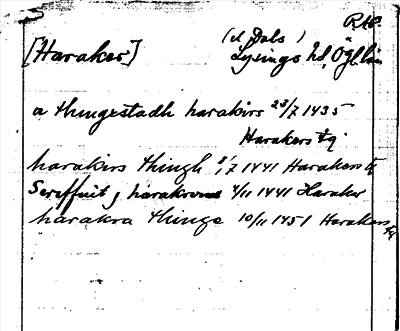 RAP.
(el Dals)
[Haraker] Lysings hd, Ögl. län
a thingestadh harakirs 23/7 1435
Harakers tg
harakirs thingh 8/7 1441 Harakers tg
Sereffnit j harakrom 4/11 1441 Haraker
harakra thinge 10/11 1451 Harakers tg